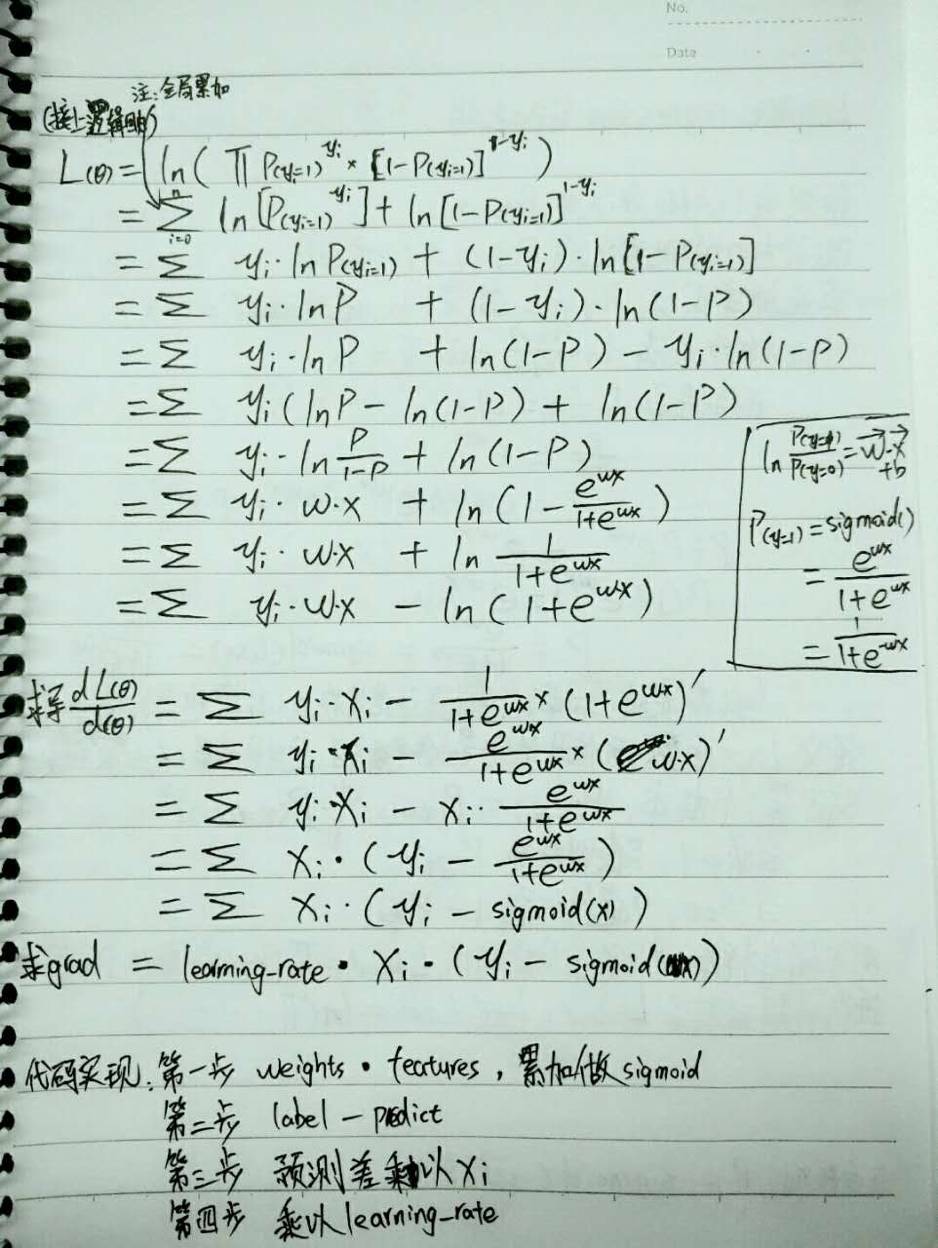 No.
Date
注:全局累加
(接上逻辑)
L(θ) = ln( ∏ P(yi=1)^yi × [1-P(yi=1)]^1-yi )
= ∑ i=0 n ln[P(yi=1)^yi] + ln[1-P(yi=1)]^1-yi
= ∑ yi·ln P(yi=1) + (1-yi)·ln[1-P(yi=1)]
= ∑ yi·lnP + (1-yi)·ln(1-P)
= ∑ yi·lnP + ln(1-P) - yi·ln(1-P)
= ∑ yi(lnP - ln(1-P) + ln(1-P)
= ∑ yi·ln P/1-P + ln(1-P)
= ∑ yi·w·x + ln(1 - e^wx/1+e^wx)
= ∑ yi·w·x + ln 1/1+e^wx
= ∑ yi·w·x - ln(1+e^wx)
ln P(y=1)/P(y=0) = w·x +b
P(y=1) = sigmoid()
= e^wx/1+e^wx
= 1/1+e^-wx
求导 dL(θ)/d(θ) = ∑ yi·xi - 1/1+e^wx × (1+e^wx)'
= ∑ yi·xi - e^wx/1+e^wx × (w·x)'
= ∑ yi·xi - xi· e^wx/1+e^wx
= ∑ xi·(yi - e^wx/1+e^wx)
= ∑ xi·(yi - sigmoid(x))
求grad = learning-rate·xi·(yi - sigmoid(wx))
代码实现:第一步 weights·features,累加做sigmoid
第二步 label-predict
第三步 预测差乘以xi
第四步 乘以learning-rate